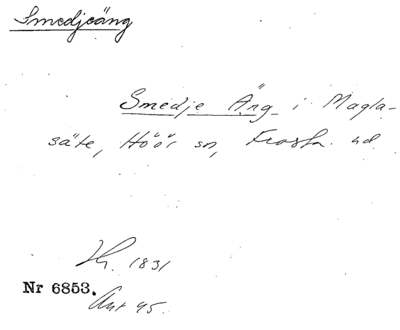 Smedjeäng
Smedje Äng i Magla-
säte, Höör sn, Frosta hd
1831
Nr 6853.
Ant 45.